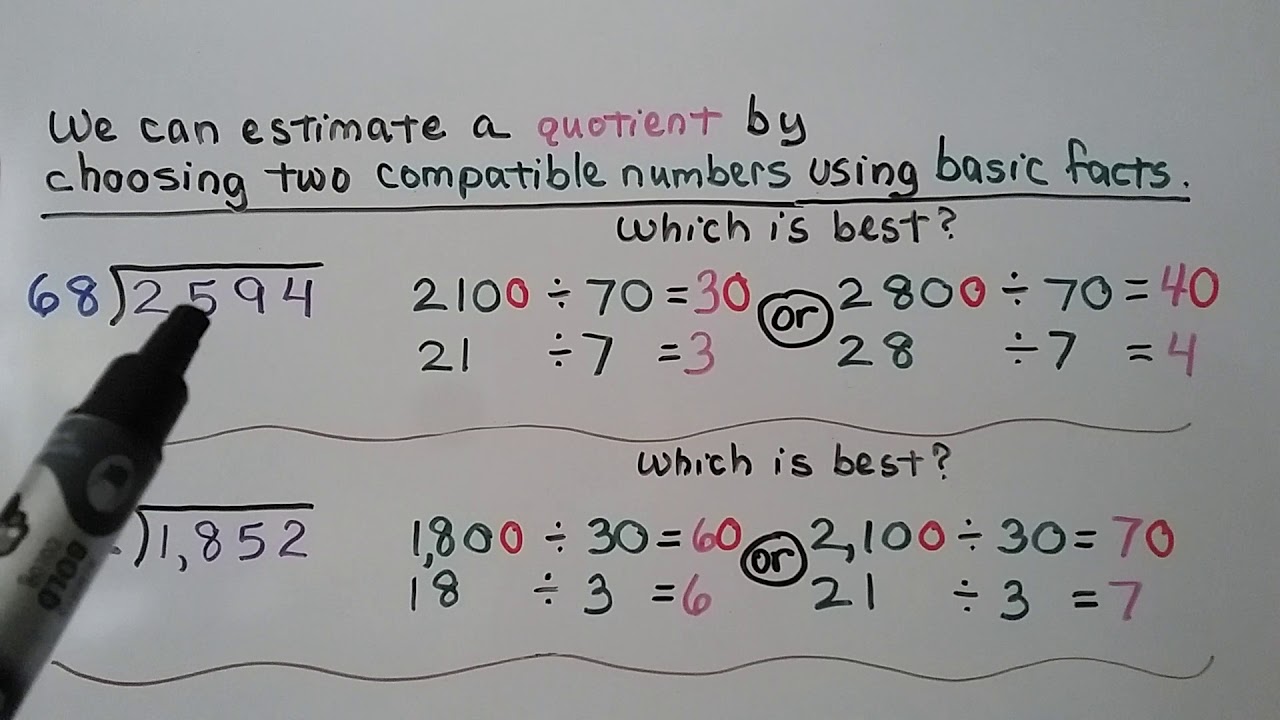 We can estimate a quotient by
choosing two compatible numbers using basic facts.
Which is best?
68)2594 2100 ÷ 70 = 30 or 2800 ÷ 70 = 40
21 ÷ 7 = 3 28 ÷ 7 = 4
Which is best?
)1,852 1,800 ÷ 30 = 60 or 2,100 ÷ 30 = 70
18 ÷ 3 = 6 21 ÷ 3 = 7
BOLD